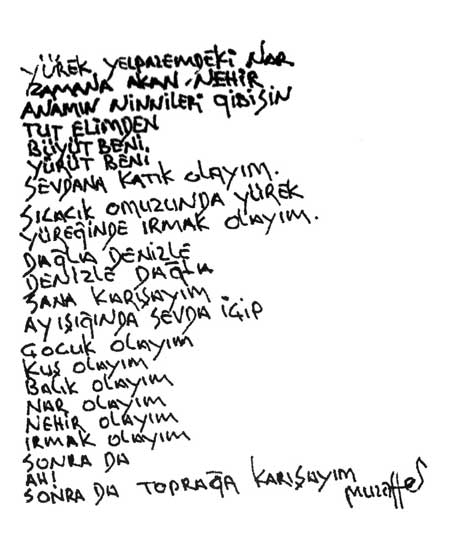 YÜREK YELPAZEMDEKİ NAR
ZAMANA AKAN NEHİR
ANAMIN NİNNİLERİ GİBİSİN
TUT ELİMDEN
BÜYÜT BENİ,
YÜRÜT BENİ
SEVDANA KATIK OLAYIM.
SICACIK OMUZUNDA YÜREK
YÜREĞİNDE IRMAK OLAYIM.
DAĞLA DENİZLE
DENİZLE DAĞLA
SANA KARIŞAYIM
AY IŞIĞINDA SEVDA İÇİP
ÇOCUK OLAYIM
KUŞ OLAYIM
BALIK OLAYIM
NAR OLAYIM
NEHİR OLAYIM
IRMAK OLAYIM
SONRA DA
AH!
SONRA DA TOPRAĞA KARIŞAYIM
Muzaffer